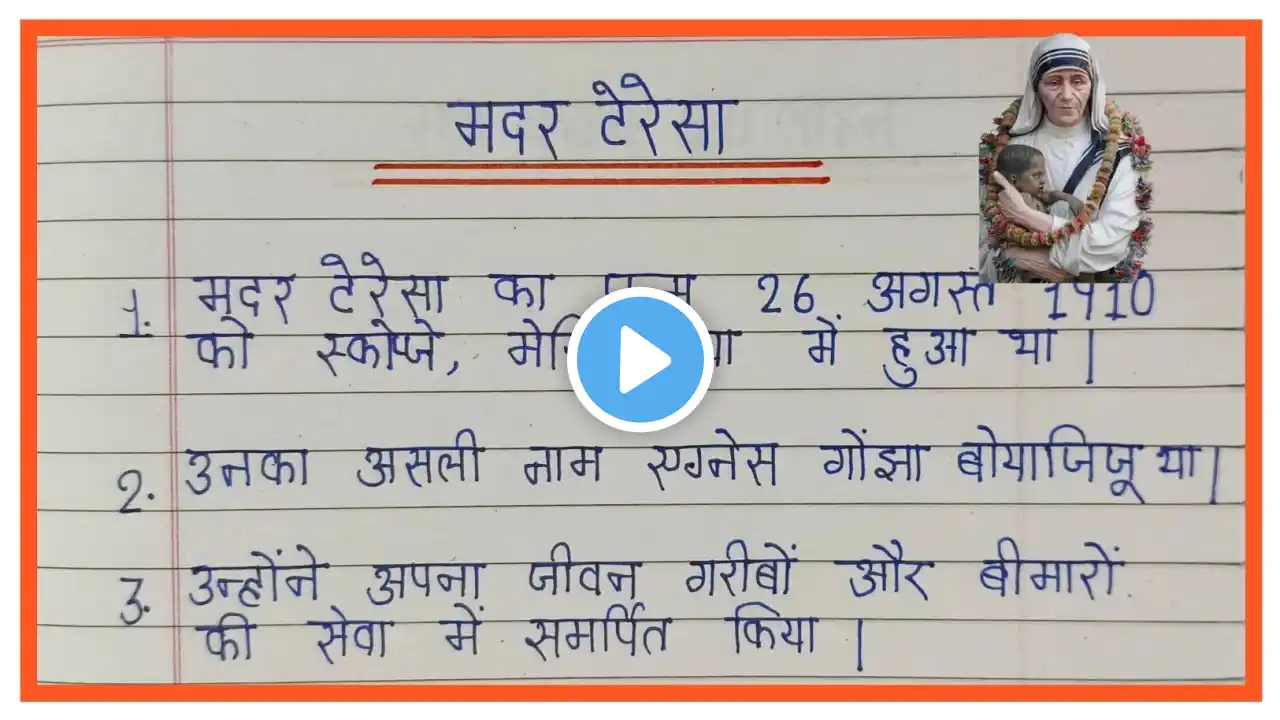 मदर टेरेसा
1. मदर टेरेसा का 26 अगस्त 1910
को स्कोप्जे, में हुआ था |
2. उनका असली नाम एग्नेस गोंझा बोयाजिजू था |
3. उन्होंने अपना जीवन गरीबों और बीमारों
की सेवा में समर्पित किया |